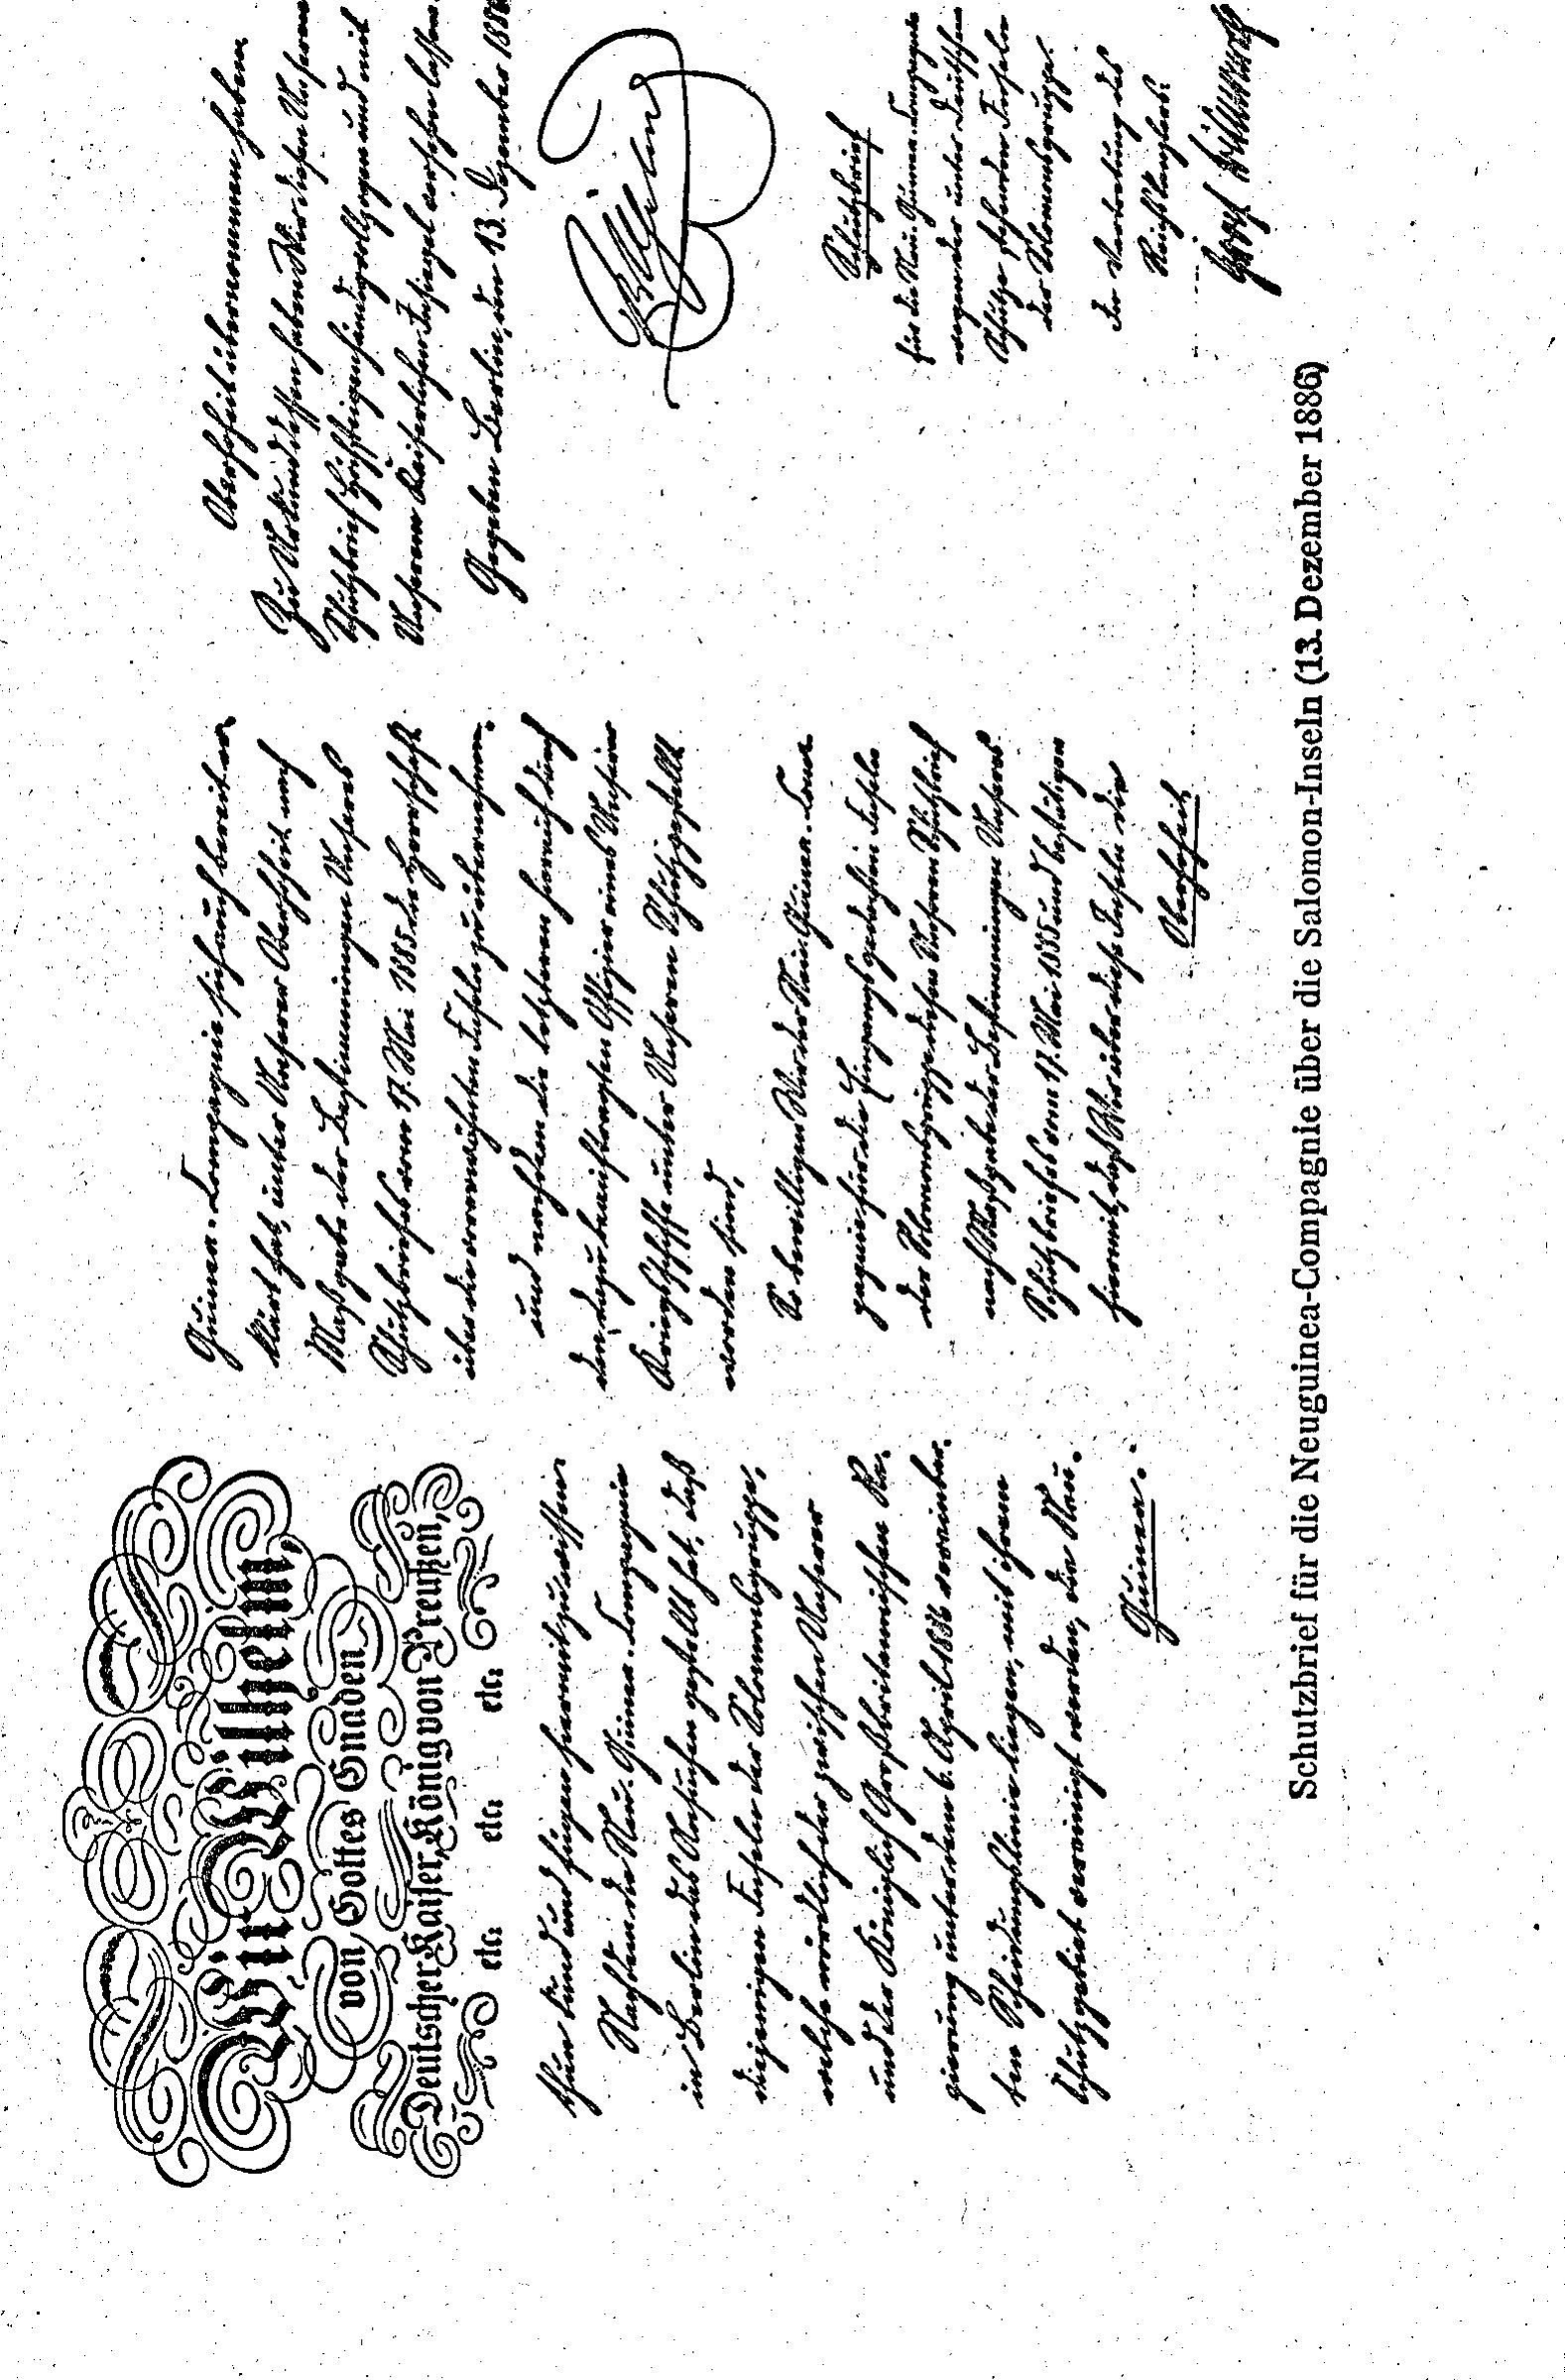 Wir Wilhelm,
von Gottes Gnaden
Deutscher Kaiser, König von Preußen,
etc: etc: etc:
thun kund und fügen hiermit zu wissen:
Nachdem die Neu-Guinea-Compagnie
in Berlin das Ansuchen gestellt hat, daß
diejenigen Inseln der Salomonsgruppe,
welche nördlich der zwischen Unserer
und der Königlich Großbritannischen Re-
gierung unter dem 6. April 1886 vereinbar-
ten Scheidungslinie liegen, mit ihrem
Schutzgebiet vereinigt werden, die Neu-
Guinea-
Guinea-Compagnie sich auch bereit er-
klärt hat, unter Unserer Oberhoheit nach
Maßgabe der Bestimmungen Unseres
Schutzbriefes vom 17. Mai 1885 die Herrschaft
über die vorerwähnten Inseln zu übernehmen,
und nachdem die letzteren hierauf durch
den dazu beauftragten Offizier eines Unserer
Kriegsschiffe unter Unseren Schutz gestellt
worden sind,
So bewilligen Wir der Neu Guinea-Com-
pagnie für die Eingangs gedachten Inseln
der Salomonsgruppe diesen Unseren Schutzbrief
nach Maßgabe der Bestimmungen Unseres
Schutzbriefes vom 17. Mai 1885 und bestätigen
hiermit, daß Wir über diese Inseln die
Oberhoheit
Oberhoheit übernommen haben.
Zu Urkund dessen haben Wir diesen Unseren
Schutzbrief Höchsteigenhändig vollzogen und mit
Unserem Kaiserlichen Insiegel versehen lassen.
Gegeben Berlin, den 13. Dezember 1886
Wilhelm
Schutzbrief
für die Neu-Guinea-Compagnie
wegen der unter deutschem
Schutze stehenden Inseln
der Salomonsgruppe.
In Vertretung des
Reichskanzlers:
Graf Bismarck
Schutzbrief für die Neuguinea-Compagnie über die Salomon-Inseln (13. Dezember 1886)